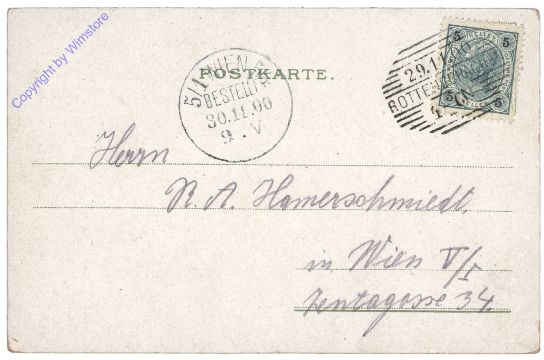 Copyright by Wimstore
POSTKARTE.
5/1 WIEN
BESTELLT
30.11.00
9.V
5 5
29.11.00
5 5
Herrn
R. A. Hamerschmiedt,
in Wien V/1
Zentagasse 34.